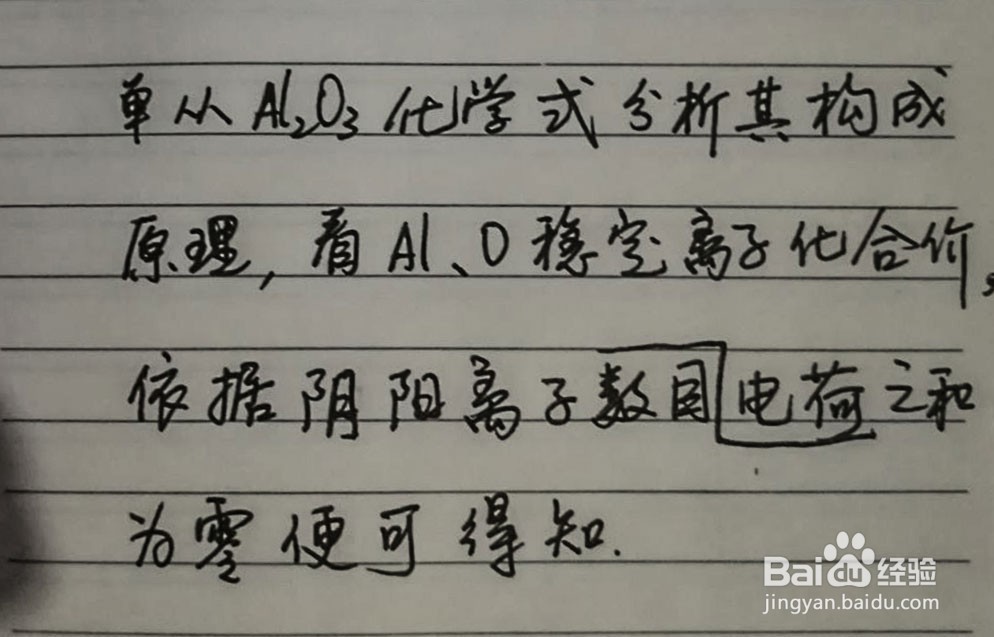 单从Al₂O₃化学式分析其构成
原理,看Al、O稳定离子化合价,
依据阴阳离子数目电荷之和
为零便可得知.
Baidu经验
jingyan.baidu.com